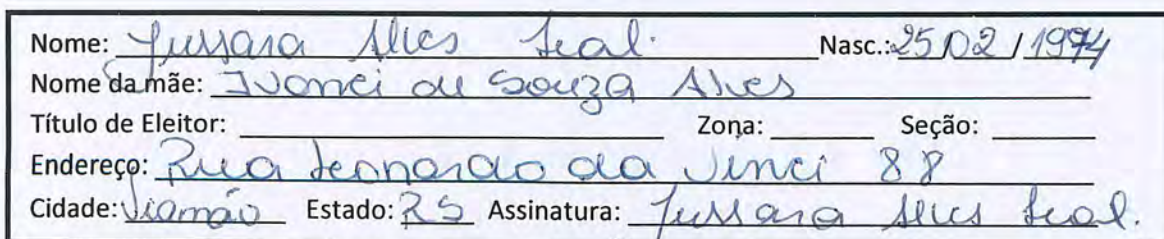 Nome: Jussara Alves Leal. Nasc.: 25/02/1974
Nome da mãe: Ivonei de Souza Alves
Título de Eleitor: Zona: Seção:
Endereço: Rua Leonardo da Vinci 88
Cidade: Viamão Estado: RS Assinatura: Jussara Alves Leal.